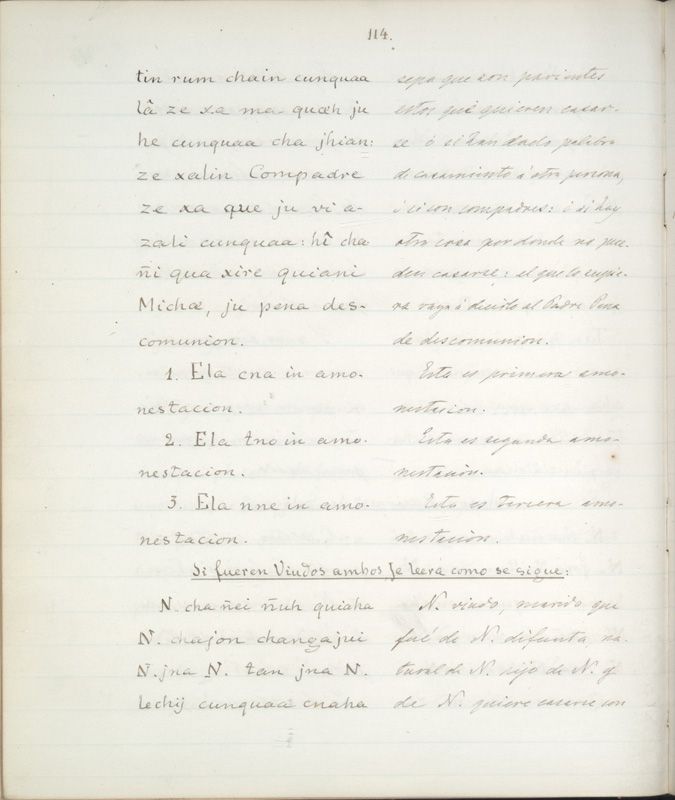 114.
tin rum chain cunquaa
lâ ze xa ma quæh ju
he cunquaa cha jhian:
ze xalin Compadre
ze xa que ju vi a-
zali cunquaa: hî cha
ñi qua xire quiani
Michæ, ju pena des-
comunion.
1. Ela cna in amo-
nestacion.
2. Ela tno in amo-
nestacion.
3. Ela nne in amo-
nestacion.
sepa que son parientes
estos que quieren casar-
se ó si han dado palabra
de casamiento á otra persona,
ó si son compadres: ó si hay
otra cosa por donde no pue-
den casarse: el que lo supie-
ra vaya á decirlo al Padre Pena
de descomunion.
Esta es primera amo-
nestacion.
Esta es segunda amo-
nestacion.
Esta es tercera amo-
nestacion.
Si fueren Viudos ambos se leerá como se sigue:
N. cha ñei ñuh quiaha
N. chajon changajui
N. jna N. tan jna N.
lechij cunquaa cnaha
N. viudo, marido que
fué de N. difunta na-
tural de N. hijo de N. y
de N. quiere casarse con